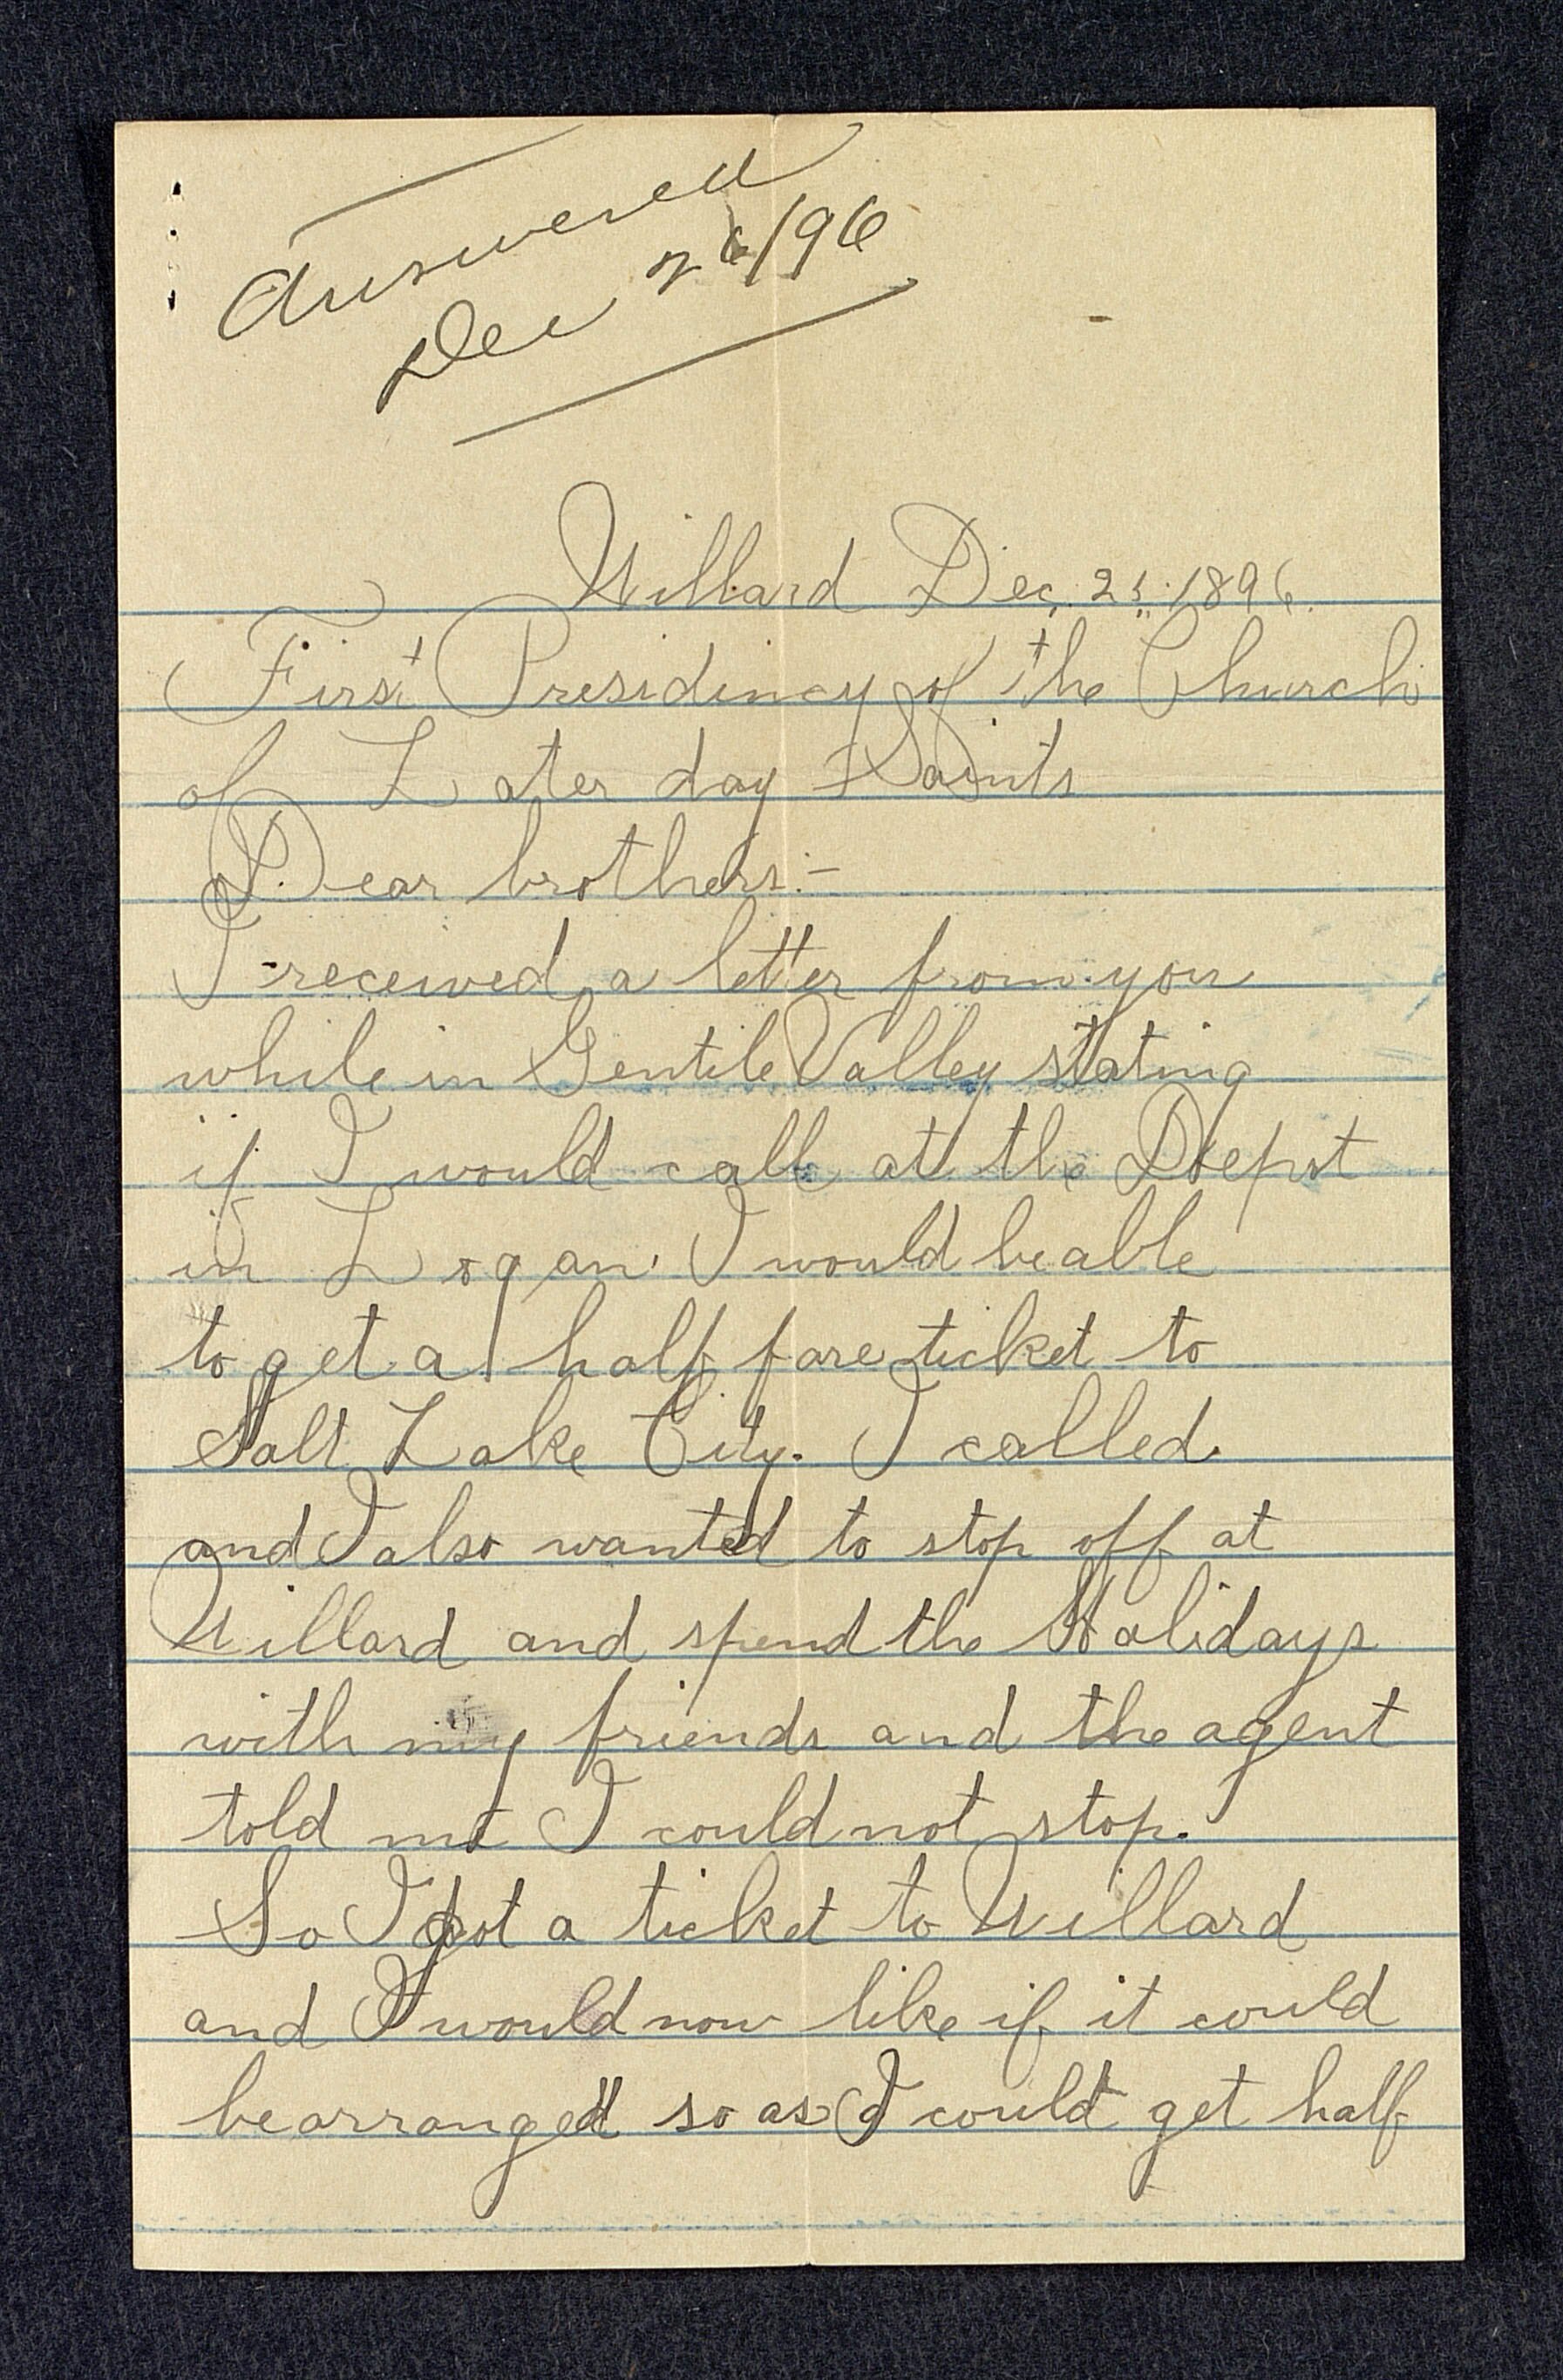 Answered
Dec 26/96
Willard Dec. 23. 1896.
First Presidincy of the Church
of Later day Saints
Dear brothers:-
I received a letter from you
while in Gentile Valley stating
if I would call at the Depot
in Logan I would be able
to get a half fare ticket to
Salt Lake City. I called
and I also wanted to stop off at
Willard and spend the Holidays
with my friends and the agent
told me I could not stop.
So I got a ticket to Willard
and I would now like if it could
be arranged so as I could get half